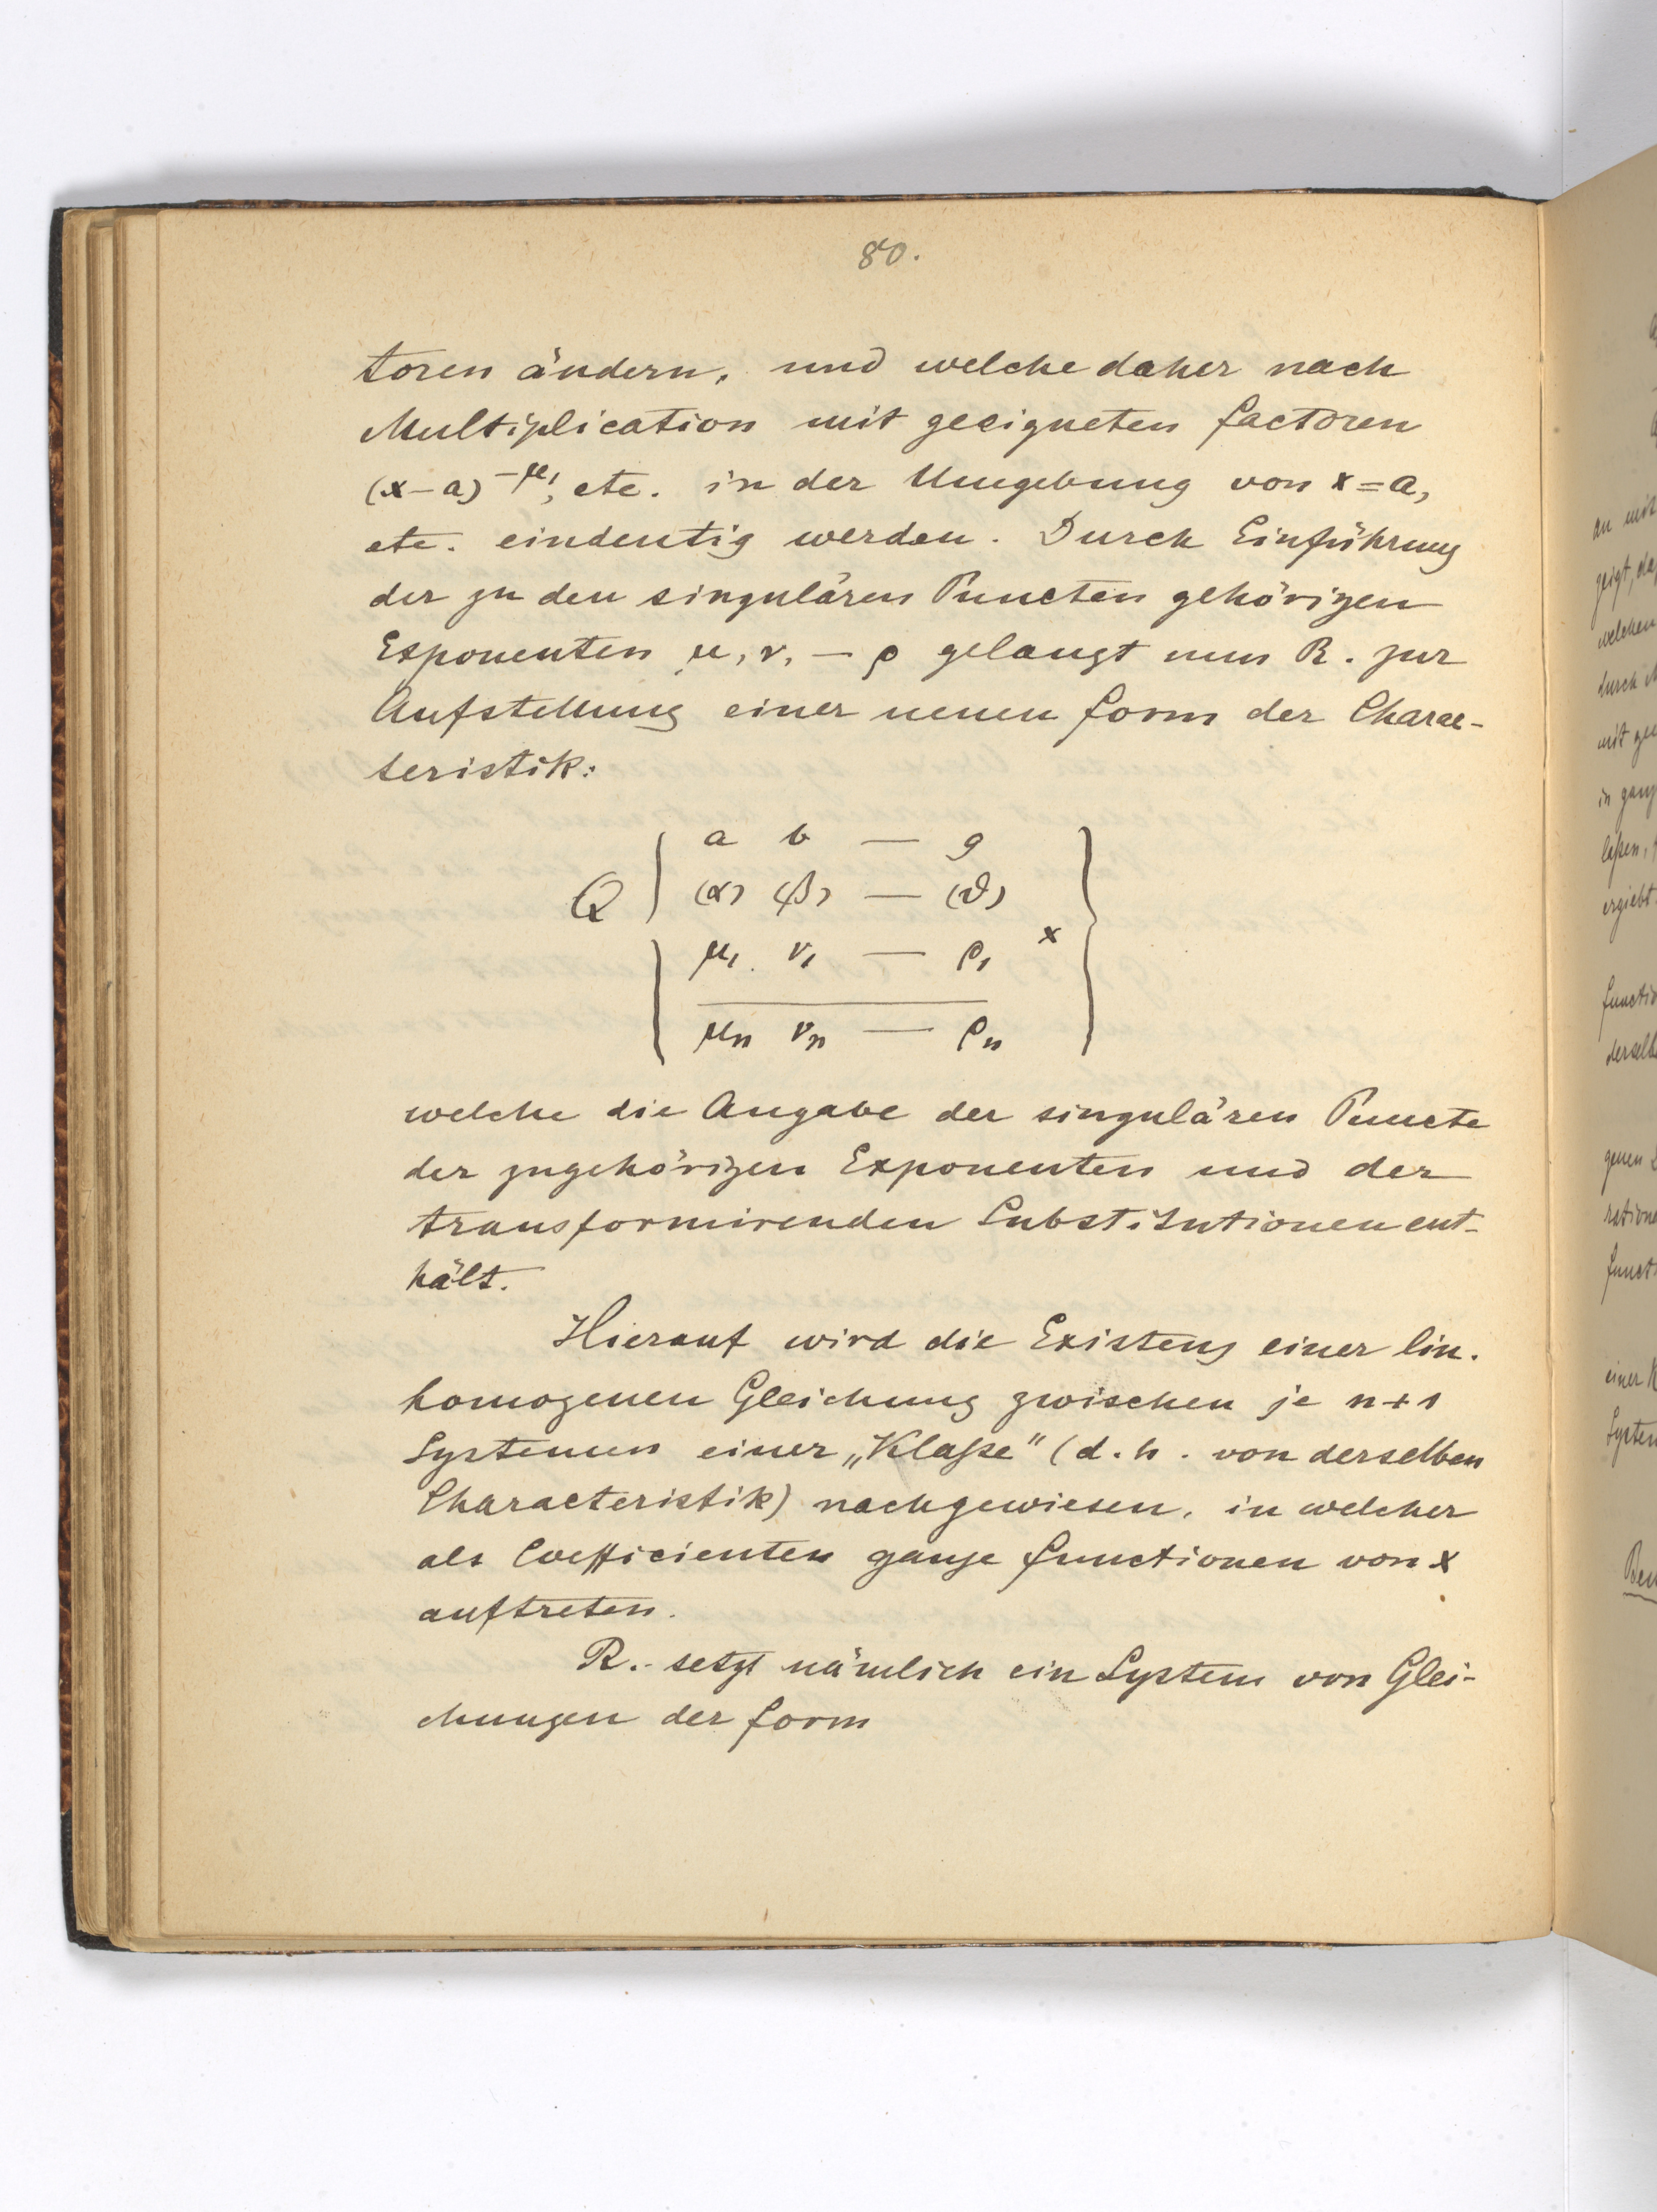 80.
toren ändern, und welche daher nach
Multiplication mit geeigneten Factoren
(x-a)^{-μ_1}, etc. in der Umgebung von x=a,
etc. eindeutig werden. Durch Einführung
der zu den singulären Puncten gehörigen
Exponenten μ, ν, — ρ gelangt nun R. zur
Aufstellung einer neuen Form der Charac-
teristik:
a b — g
(α) (β) — (ϑ)
Q { μ_1 ν_1 — ρ_1 x }
μ_n ν_n — ρ_n
welche die Angabe der singulären Puncte
der zugehörigen Exponenten und der
transformirenden Substitutionen ent-
hält.
Hierauf wird die Existenz einer lin.
homogenen Gleichung zwischen je n+1
Systemen einer „Klaſse" (d.h. von derselben
Characteristik) nachgewiesen, in welcher
als Coefficienten ganze Functionen von x
auftreten.
R. setzt nämlich ein System von Glei-
chungen der Form
an mit
zeigt, da
welchen
durch
mit
in ganz
laſsen,
ergiebt
Functio
derselb
genen
ratione
Funct
einer
System
Bew